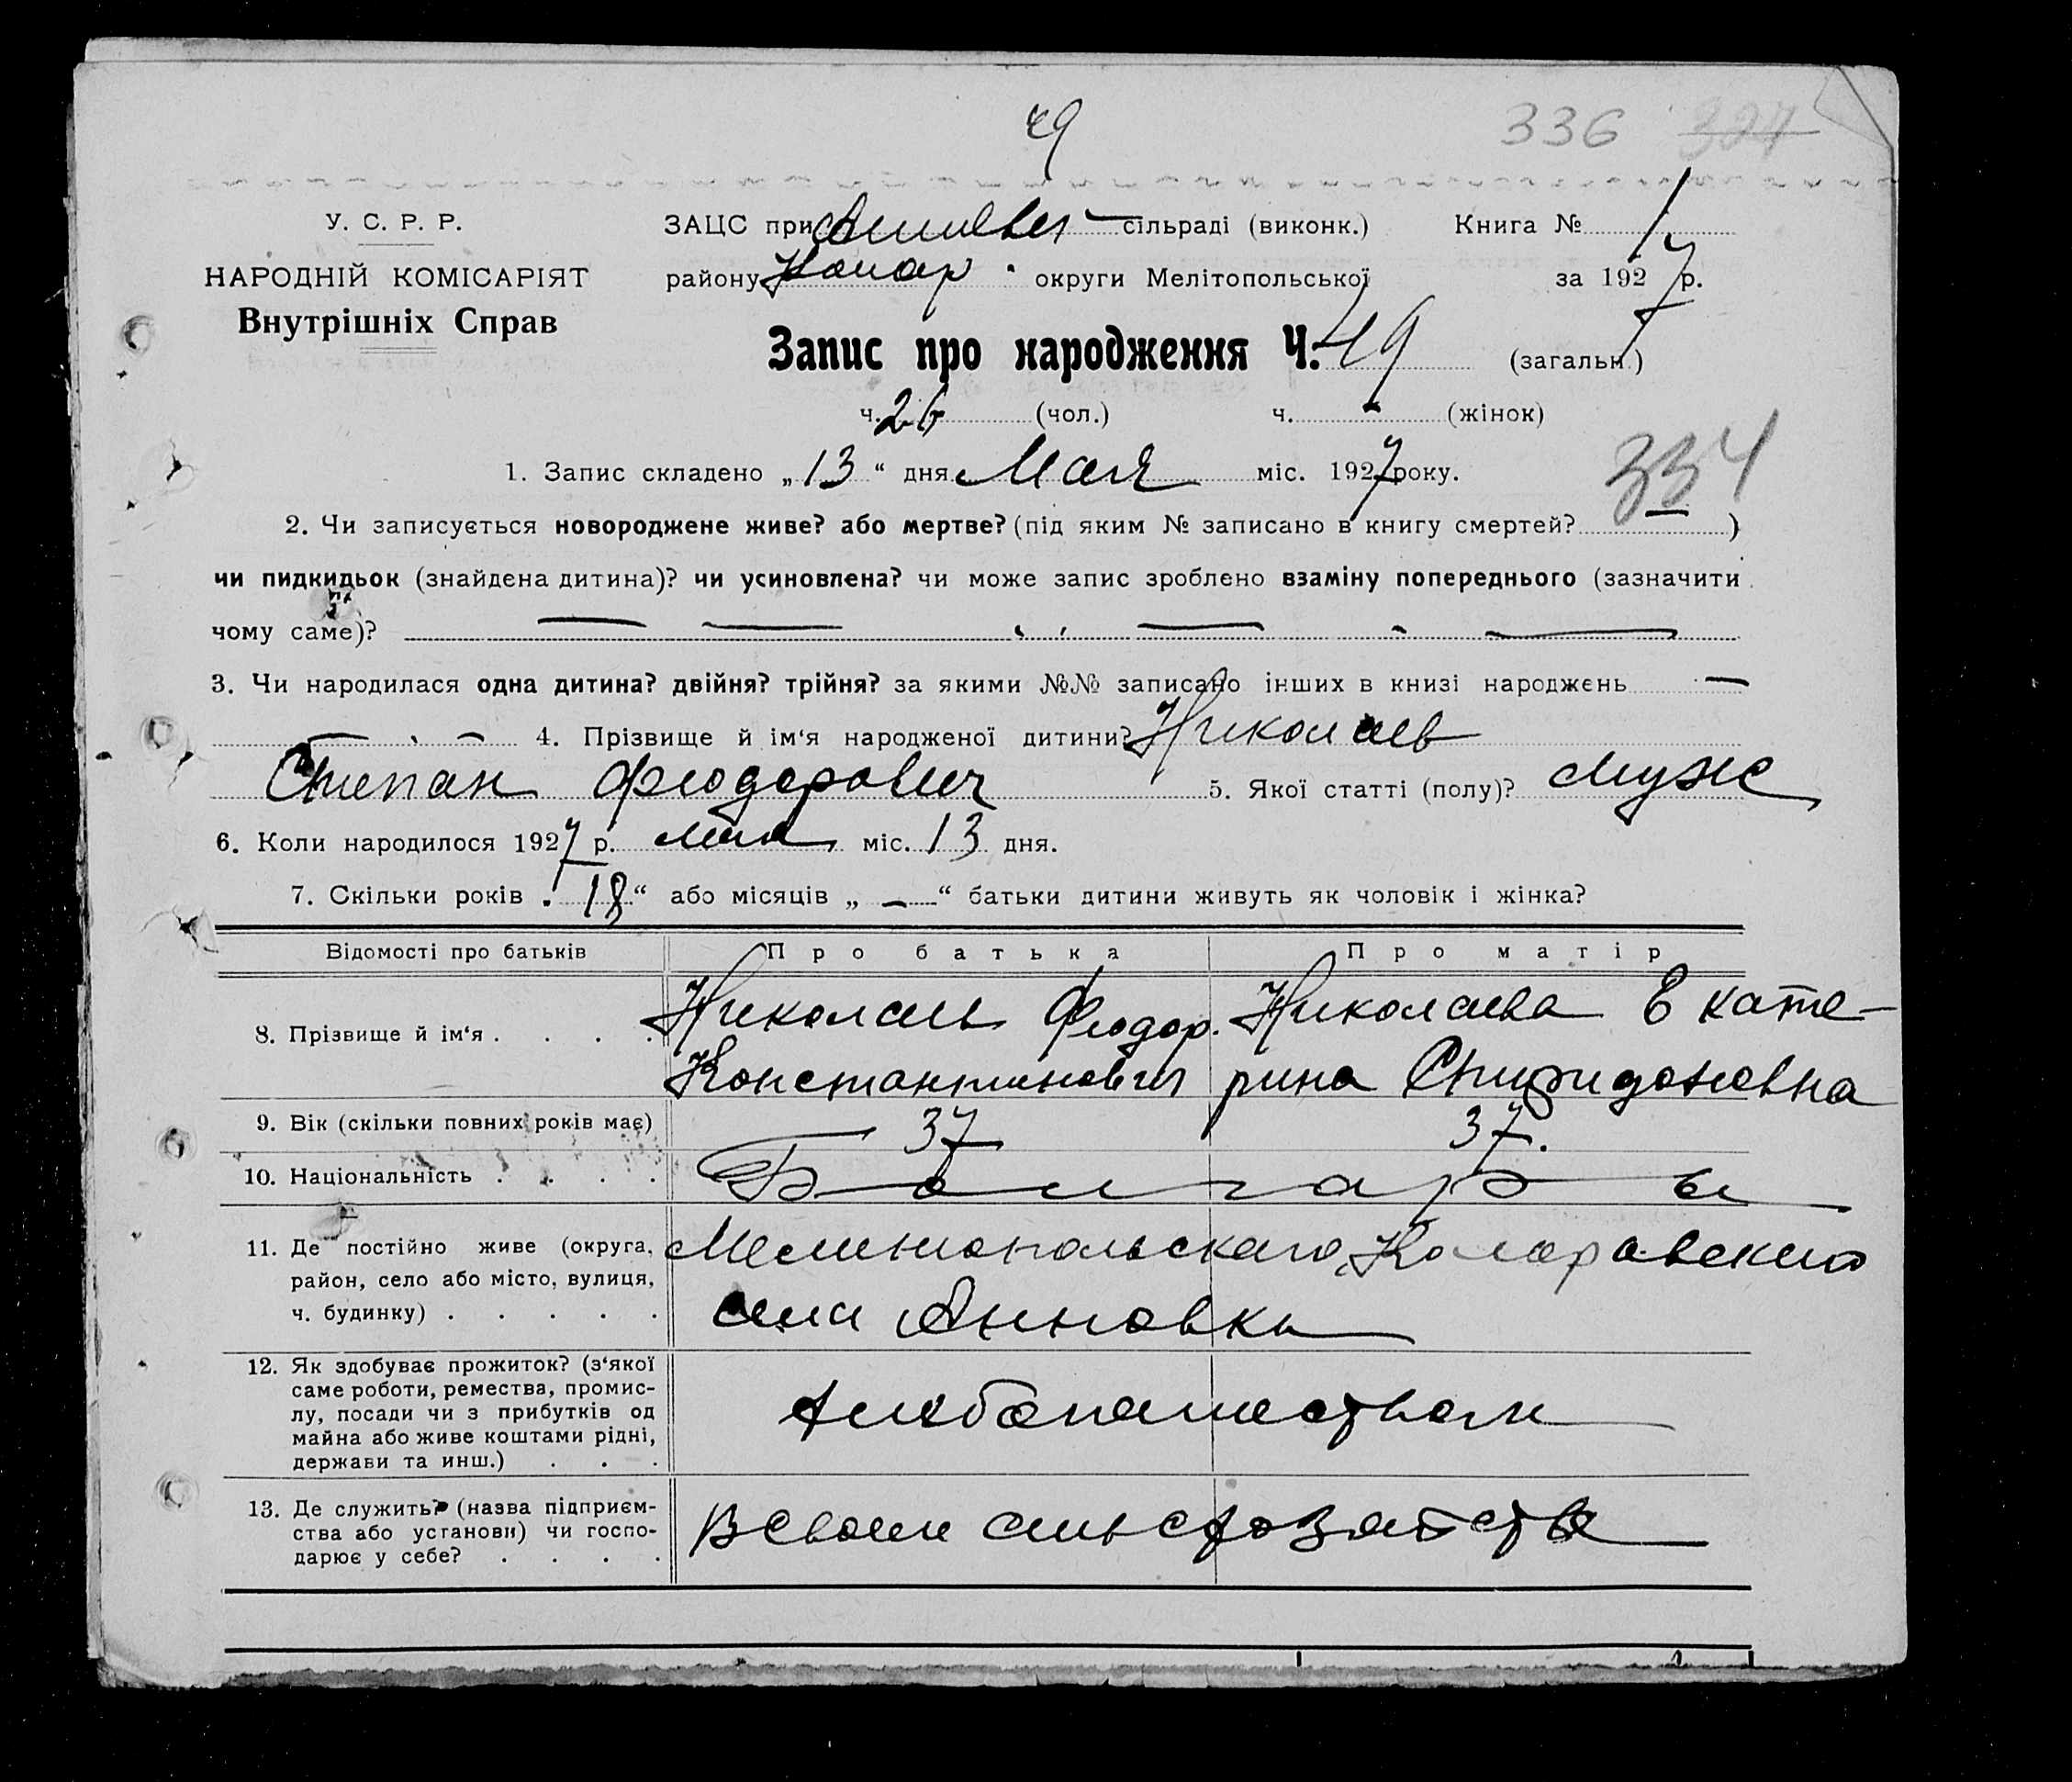 49
336 327
У. С. Р. Р.
НАРОДНІЙ КОМІСАРІЯТ
Внутрішніх Справ
ЗАЦС при сільраді (виконк.)
Книга № 1
району Колар. округи Мелітопольської
за 1927 р.
Запис про народження Ч. 49 (загальн.)
ч. 26 (чол.) ч. - (жінок)
1. Запис складено „13“ дня Мая міс. 1927 року.
334
2. Чи записується новороджене живе? або мертве? (під яким № записано в книгу смертей? — )
чи пидкидьок (знайдена дитина)? чи усиновлена? чи може запис зроблено взаміну попереднього (зазначити
чому саме)? — — — —
3. Чи народилася одна дитина? двійня? трійня? за якими №№ записано інших в книзі народжень —
— — 4. Прізвище й ім‘я народженої дитини? Николаев
Степан Феодорович 5. Якої статті (полу)? муж
6. Коли народилося 1927 р. мая міс. 13 дня.
7. Скільки років „18“ або місяців „ — “ батьки дитини живуть як чоловік і жінка?
Відомості про батьків Про батька Про матір
8. Прізвище й ім‘я . . . . Николаев Феодор. Николаева Екате-
Константинович рина Спиридоновна
9. Вік (скільки повних років має) 37 37.
10. Національність . . . . Болгары
11. Де постійно живе (округа, Мелитопольскаго, Коларовскаго
район, село або місто, вулиця,
ч. будинку) . . . . . села Анновки
12. Як здобуває прожиток? (з‘якої
саме роботи, ремества, промис-
лу, посади чи з прибутків од
майна або живе коштами рідні,
держави та инш.) . . . хлебопашеством
13. Де служить? (назва підприєм-
ства або установи) чи госпо-
дарює у себе? . . . . В своем